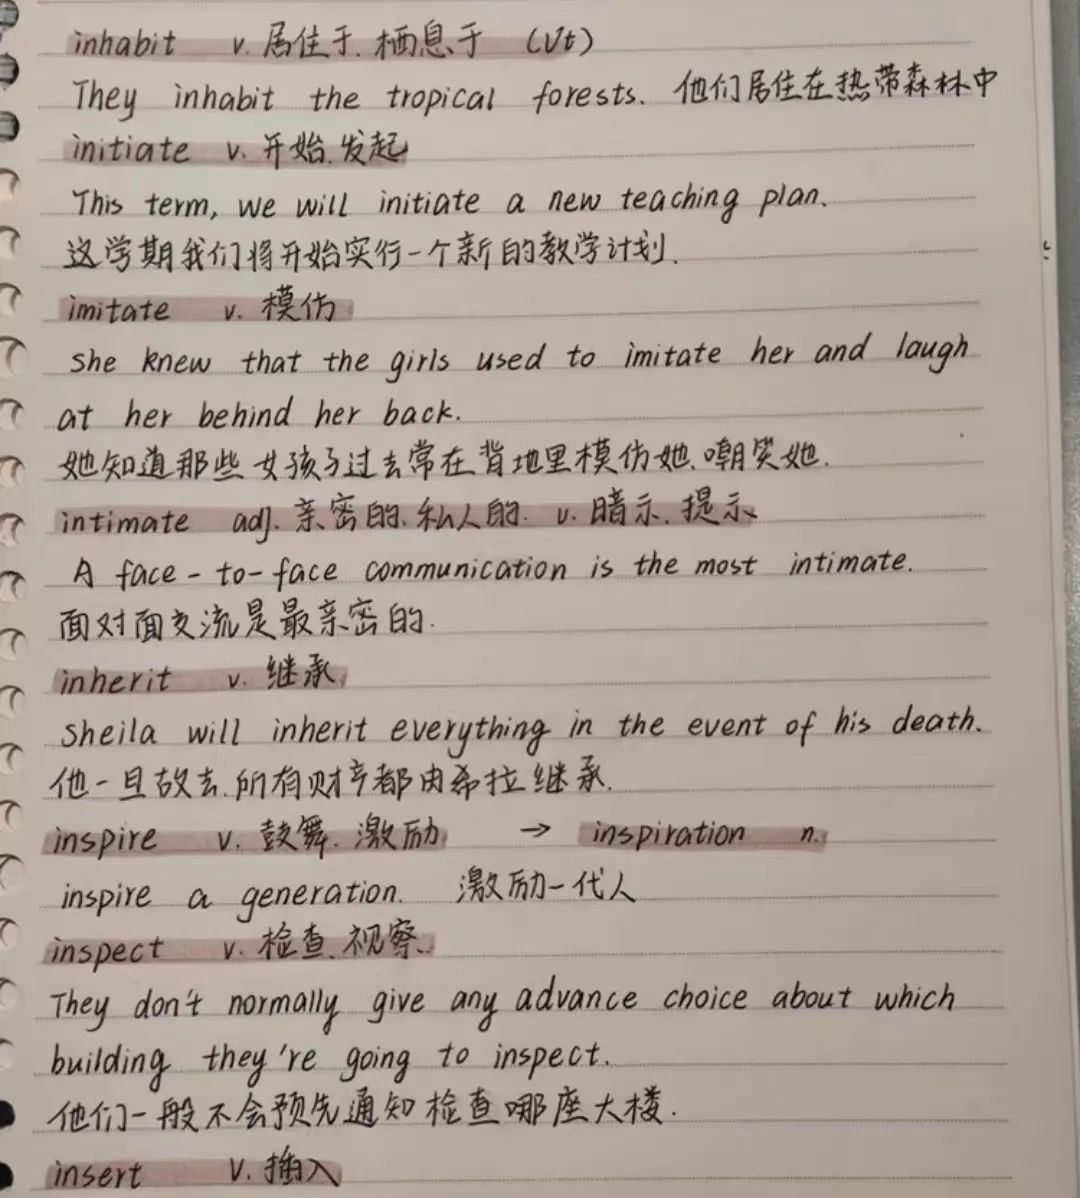 inhabit v. 居住于.栖息于 (Vt)
They inhabit the tropical forests. 他们居住在热带森林中
initiate v. 开始.发起
This term, we will initiate a new teaching plan.
这学期我们将开始实行一个新的教学计划.
imitate v. 模仿
she knew that the girls used to imitate her and laugh
at her behind her back.
她知道那些女孩子过去常在背地里模仿她.嘲笑她.
intimate adj. 亲密的.私人的. v. 暗示.提示
A face-to-face communication is the most intimate.
面对面交流是最亲密的.
inherit v. 继承
Sheila will inherit everything in the event of his death.
他一旦故去.所有财产都由希拉继承.
inspire v. 鼓舞.激励 → inspiration n.
inspire a generation. 激励一代人
inspect v. 检查.视察.
They don't normally give any advance choice about which
building they're going to inspect.
他们一般不会预先通知检查哪座大楼.
insert v. 插入